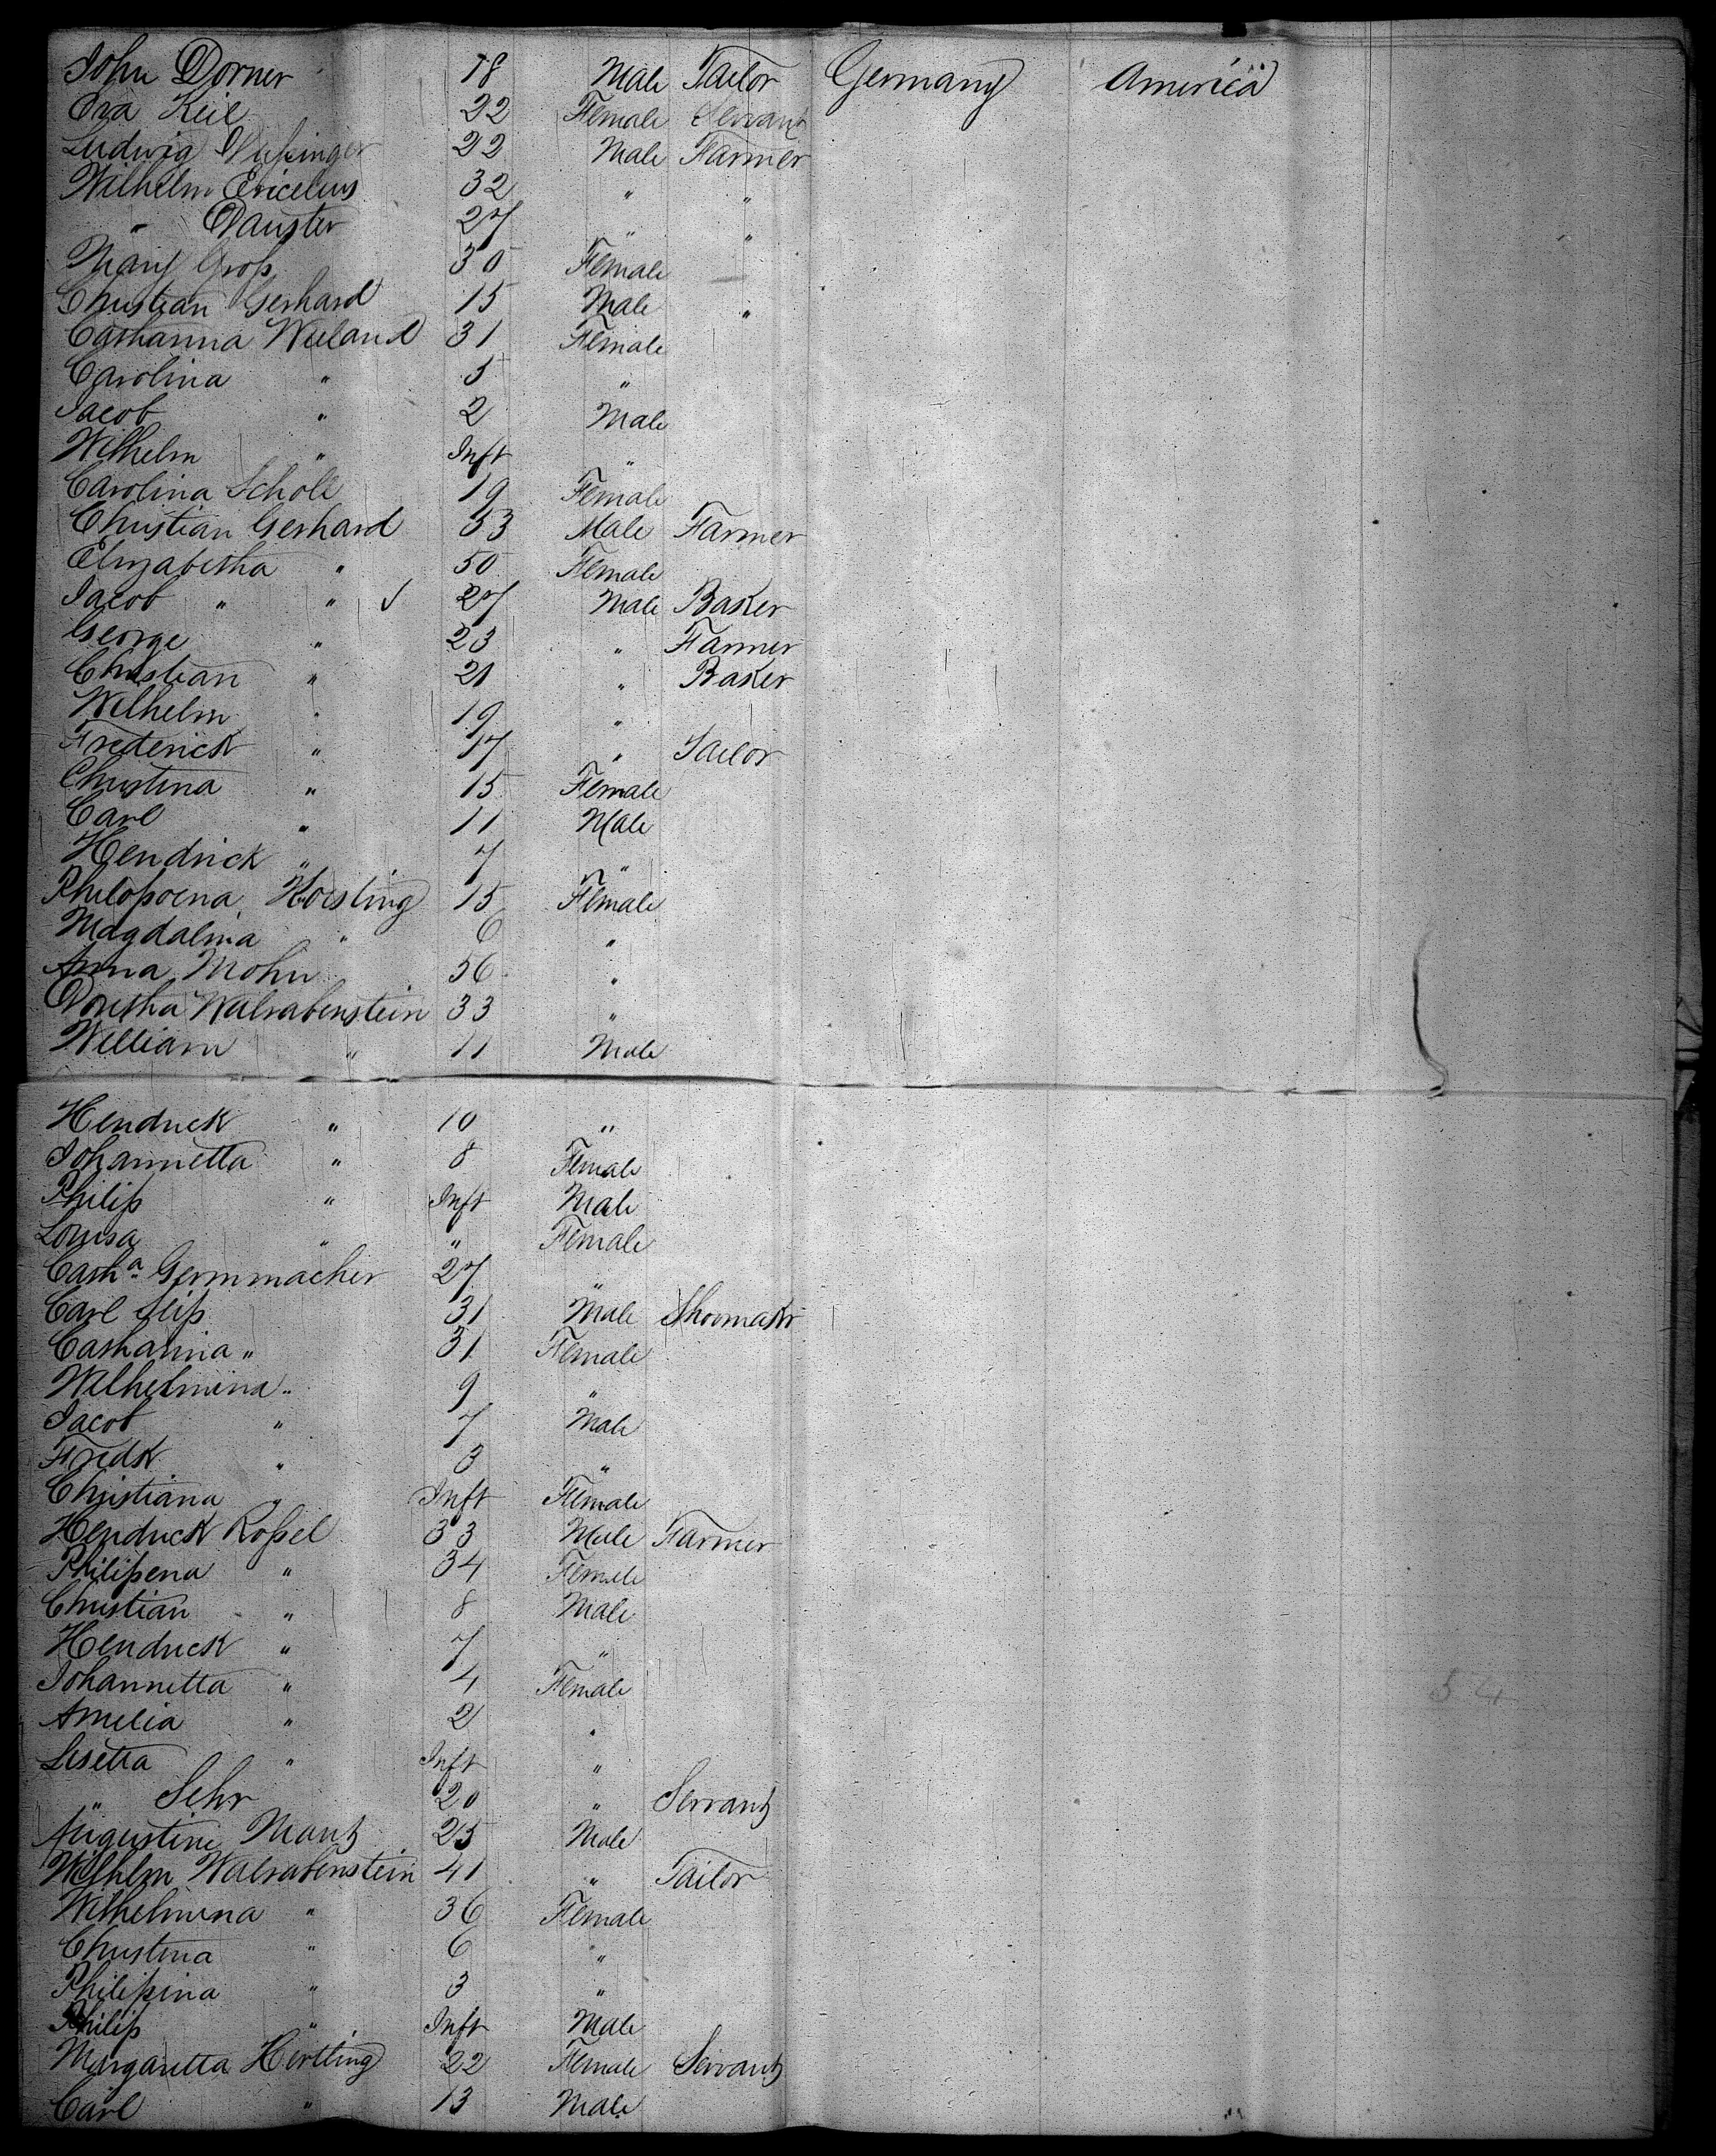 John Dorner 18 Male Tailor Germany America
Eva Keil 22 Female Servant
Ludwig 22 Male Farmer
Wilhelm Ericelius 32 " "
" Dauster 27 " "
Mary Groß 30 Female
Christian Gerhard 15 Male "
Catharina Weiland 31 Female
Carolina " 5 "
Jacob " 2 Male
Wilhelm " Inft "
Carolina Scholl 19 Female
Christian Gerhard 53 Male Farmer
Elizabetha " 50 Female
Jacob " " ✓ 27 Male Baker
George " 23 " Farmer
Christian " 21 " Baker
Wilhelm " 19 "
Frederick " 17 " Tailor
Christina " 15 Female
Carl " 11 Male
Hendrick " 7 "
Philopoena Horsting 15 Female
Magdalina " 6 "
Anna Mohn 56 "
Doretha Walrabenstein 33 "
William " 11 Male
Hendrick " 10 "
Johannetta " 8 Female
Philip " Inft Male
Louisa " " Female
Catha. Germmacher 27 "
Carl Seip 31 Male Shoemakr
Catharina " 31 Female
Wilhelmina " 9 "
Jacob " 7 Male
Fredk " 3 "
Christiana " Inft Female
Hendrick Roßel 33 Male Farmer
Philipena " 34 Female
Christian " 8 Male
Hendrick " 7 "
Johannetta " 4 Female
Amelia " 2 "
Lisetta " Inft "
" Sehr 20 " Servant
Augustine Mantz 25 Male
Wilhlm Walrabenstein 41 " Tailor
Wilhelmina " 36 Female
Christina " 6 "
Philipina " 3 "
Philip " Inft Male
Margaretta Hertling 22 Female Servant
Carl " 13 Male
54